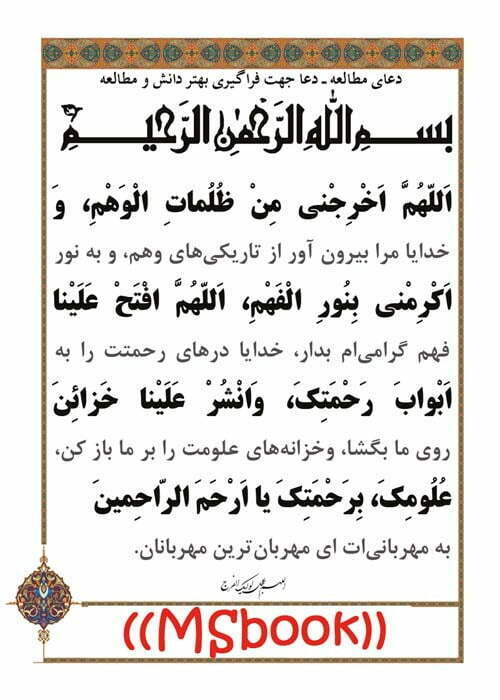 دعای مطالعه ـ دعا جهت فراگیری بهتر دانش و مطالعه
بسم الله الرحمن الرحیم
اَللّهُمَّ اَخْرِجْنی مِنْ ظُلُماتِ الْوَهْمِ، وَ
خدایا مرا بیرون آور از تاریکی‌های وهم، و به نور
اَکْرِمْنی بِنُورِ الْفَهْمِ، اَللّهُمَّ افْتَحْ عَلَیْنا
فهم گرامی‌ام بدار، خدایا درهای رحمتت را به
اَبْوابَ رَحْمَتِکَ، وَانْشُرْ عَلَیْنا خَزائِنَ
روی ما بگشا، وخزانه‌های علومت را بر ما باز کن،
عُلُومِکَ، بِرَحْمَتِکَ یا اَرْحَمَ الرّاحِمینَ
به مهربانی‌ات ای مهربان‌ترین مهربانان.
اللهم عجل لولیک الفرج
((MSbook))